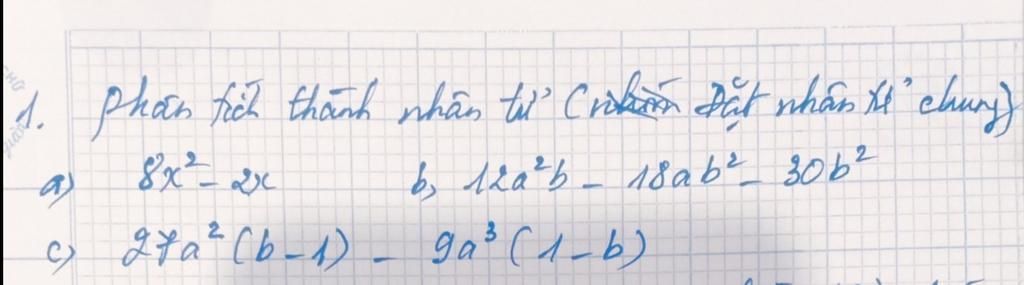 1. Phân tích thành nhân tử (Đặt nhân tử chung)
a) 8x² - 2x b, 12a²b - 18ab² - 30b²
c) 27a² (b - 1) - 9a³ (1 - b)